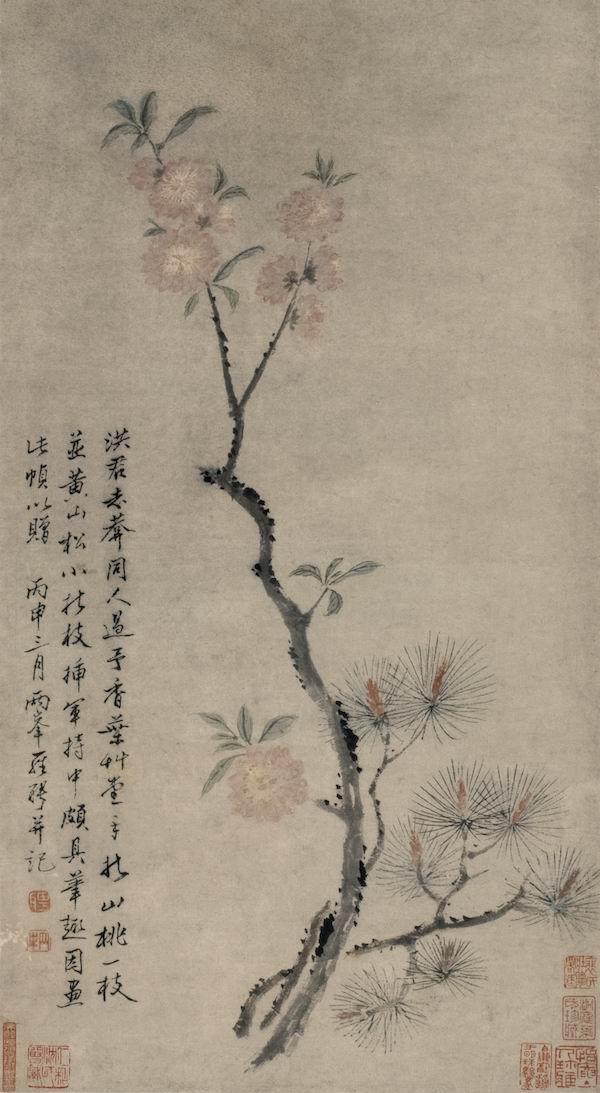 洪君去莽同人過予香葉艸堂手折山桃一枝
並黃山松小折枝插軍持中頗具華趣因畫
此幀以贈 丙申三月兩峯羅聘并記